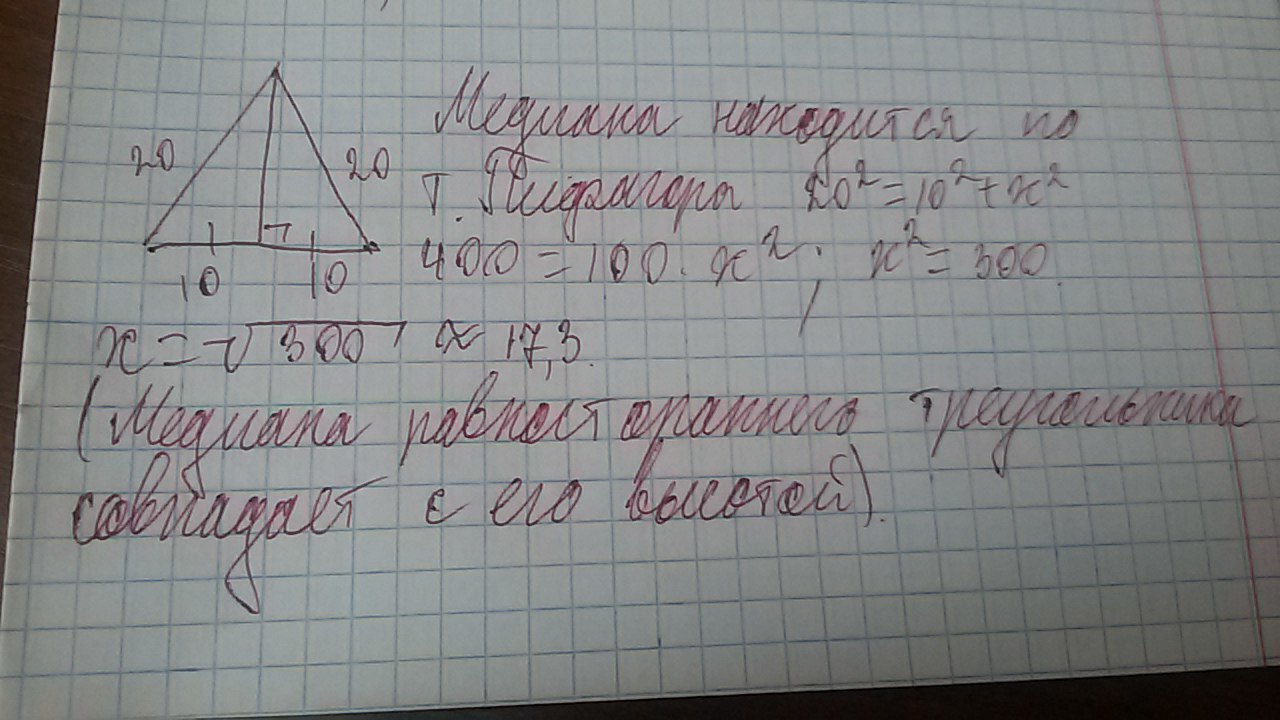 20
20
10
10
Медиана находится по
т. Пифрагора 20² = 10² + x²
400 = 100 · x² ; x² = 300.
x = √300 ≈ 17,3.
(Медиана равностораннего треугольника
совпадает с его высотой).